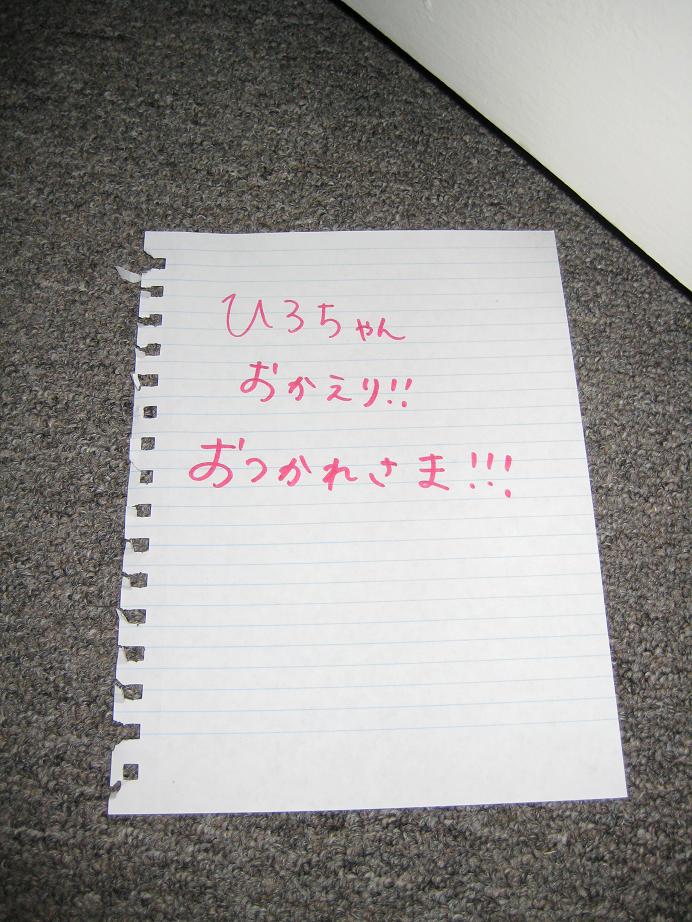 ひろちゃん
おかえり!!
おつかれさま!!!